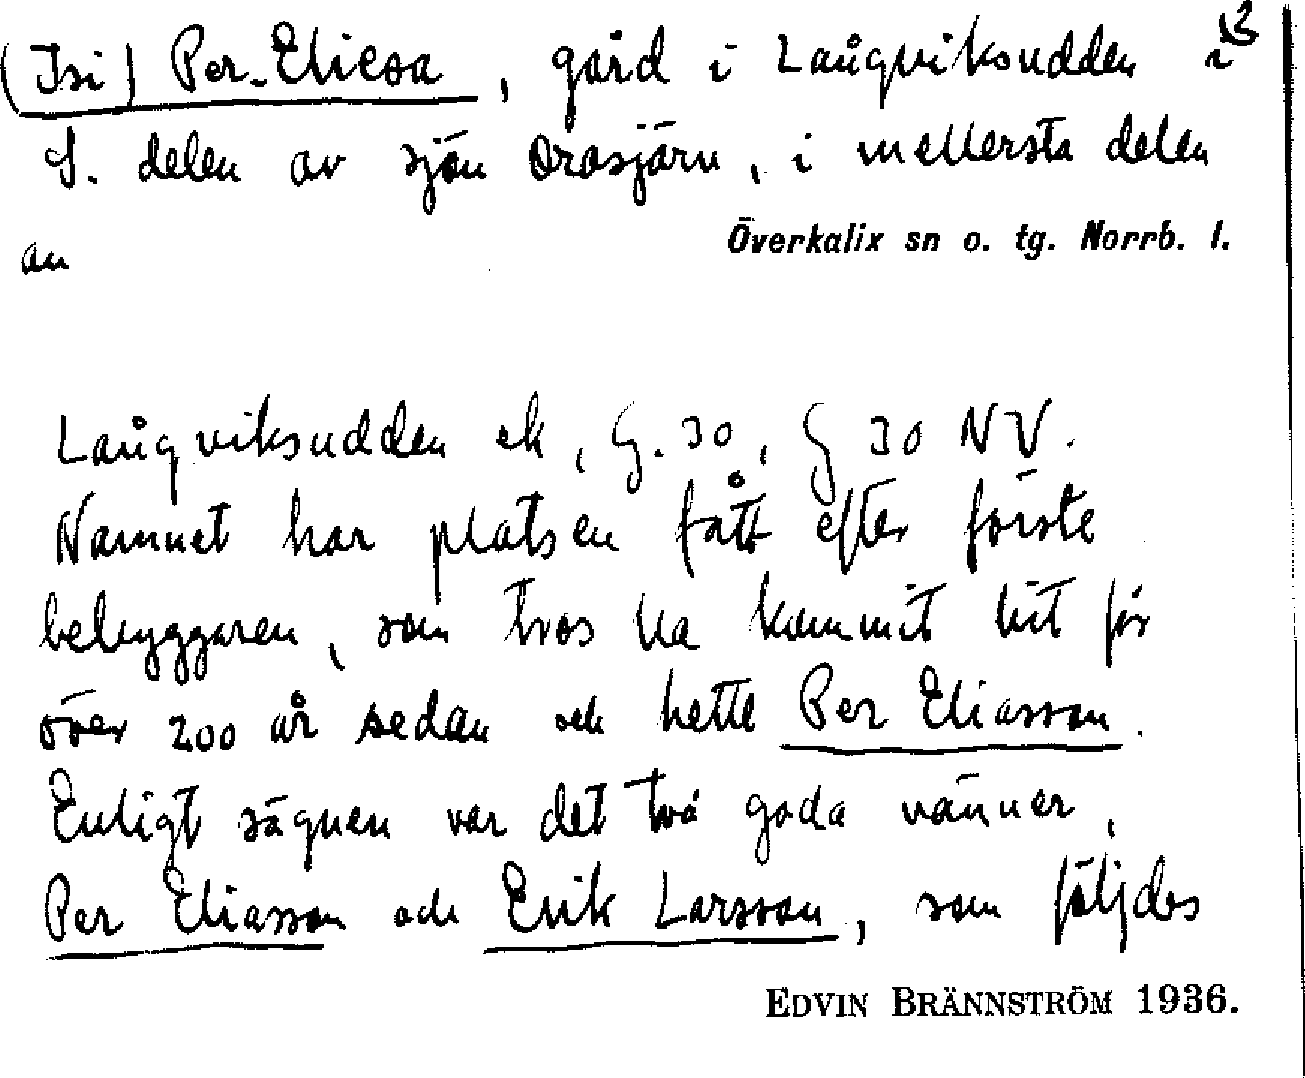 (Isi) Per-Eliesa, gård i Långviksudden i 3
S. delen av sjön Orasjärv, i mellersta delen
av Överkalix sn o. tg. Norrb. l.
Långviksudden ek, G. 30, G 30 NV.
Namnet har platsen fått efter förste
bebyggaren, som tros ha kommit hit för
över 200 år sedan och hette Per Eliasson.
Enligt sägnen var det två goda vänner,
Per Eliasson och Erik Larsson, som följdes
EDVIN BRÄNNSTRÖM 1936.